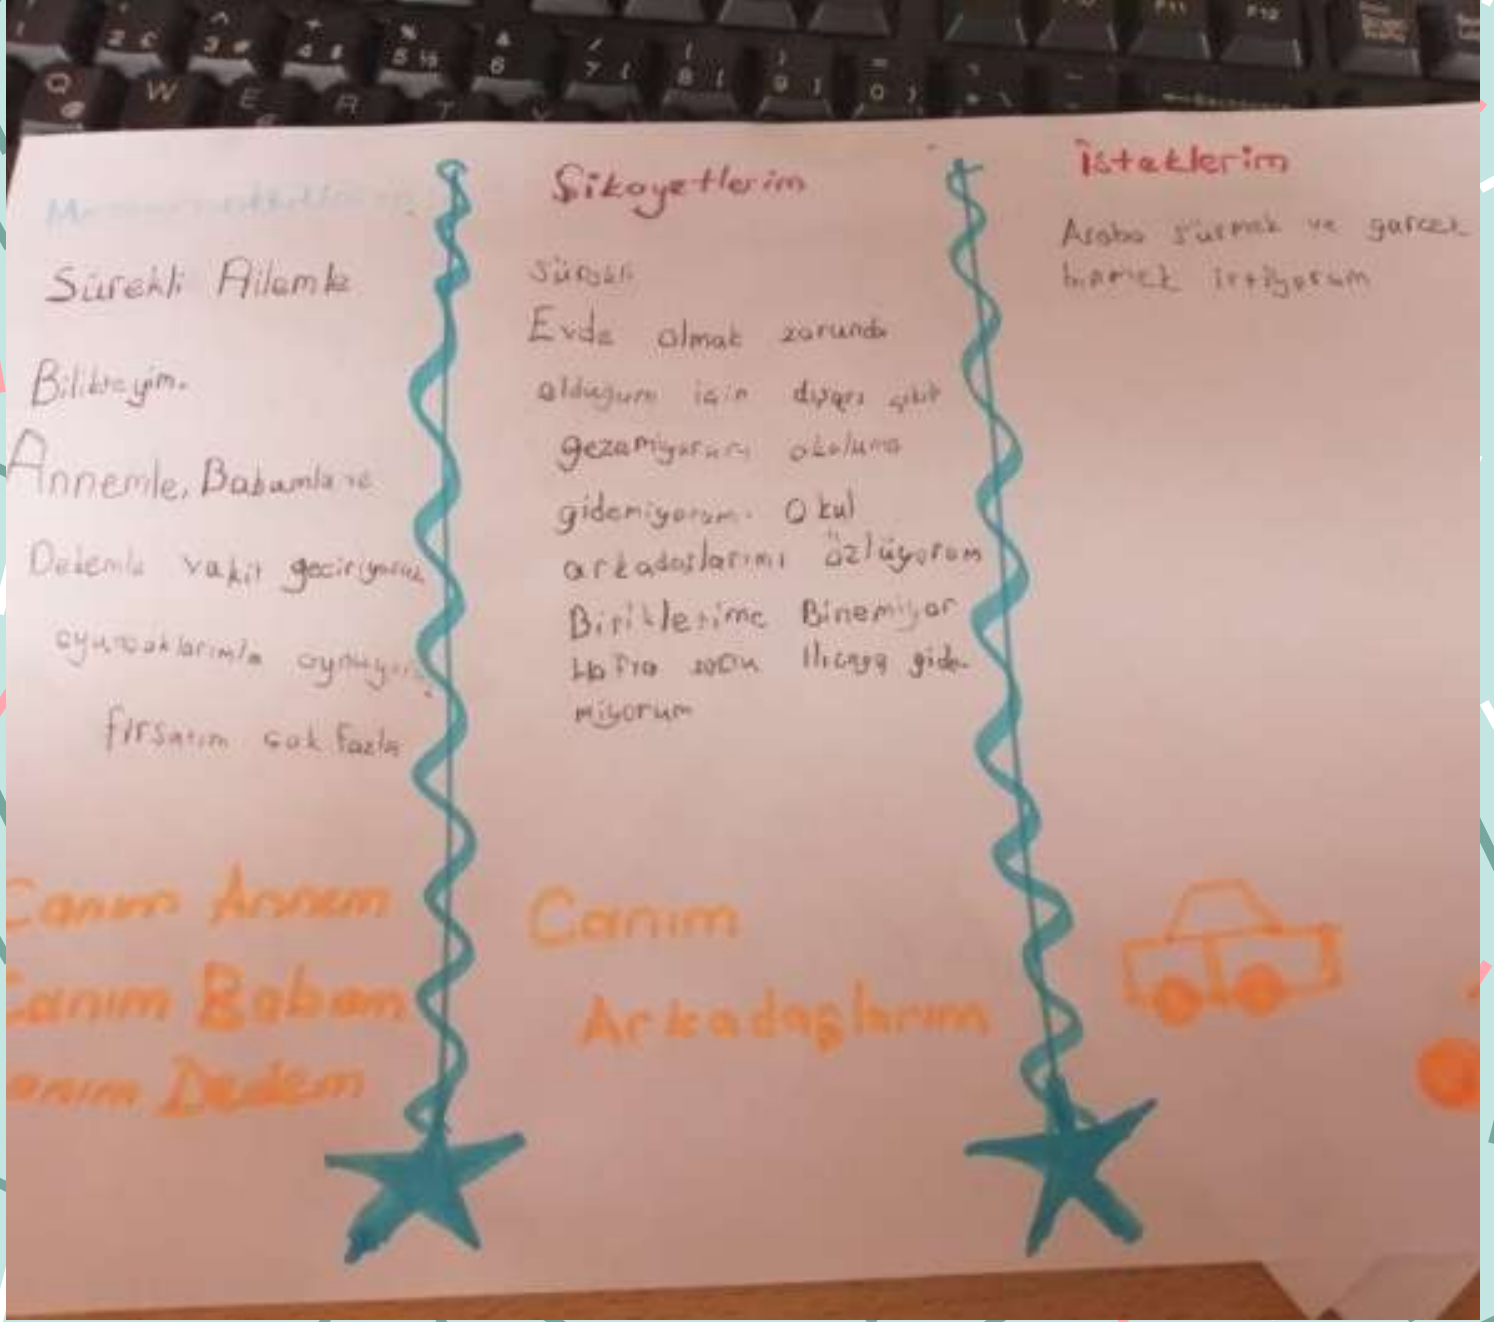 Sürekli Ailemle
Bilikteyim.
Annemle, Babamla ve
Dedemle vakit geciriyorum
oyuncaklarımla
fırsatım çok fazla
Canım Annem
Canım Babam
Canım Dedem
Şikayetlerim
sürekli
Evde olmak zorunda
olduğum için dışarı çıkıp
gezemiyorum okuluma
gidemiyorum. Okul
arkadaşlarımı özlüyorum
Bisikletime Binemiyor
gide-
miyorum
Canım
Arkadaşlarım
İsteklerim
Araba sürmek ve
istiyorum